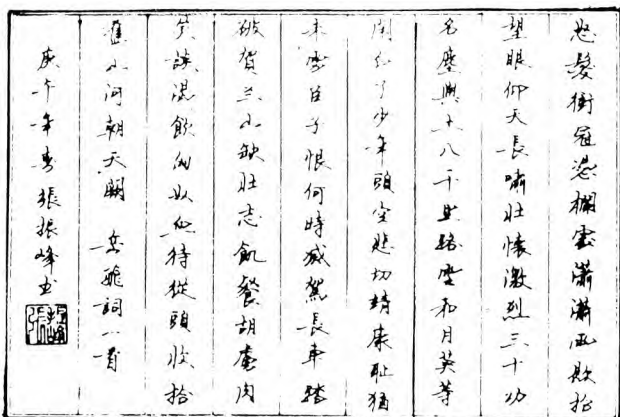 怒髮衝冠憑欄處瀟瀟雨歇抬
望眼仰天長嘯壯懷激烈三十功
名塵與土八千里路雲和月莫等
閑白了少年頭空悲切靖康恥猶
未雪臣子恨何時滅駕長車踏
破賀兰山缺壯志飢餐胡虜肉
笑談渴飲匈奴血待從頭收拾
舊山河朝天闕 岳飛詞一首
庚午年春張振峰书